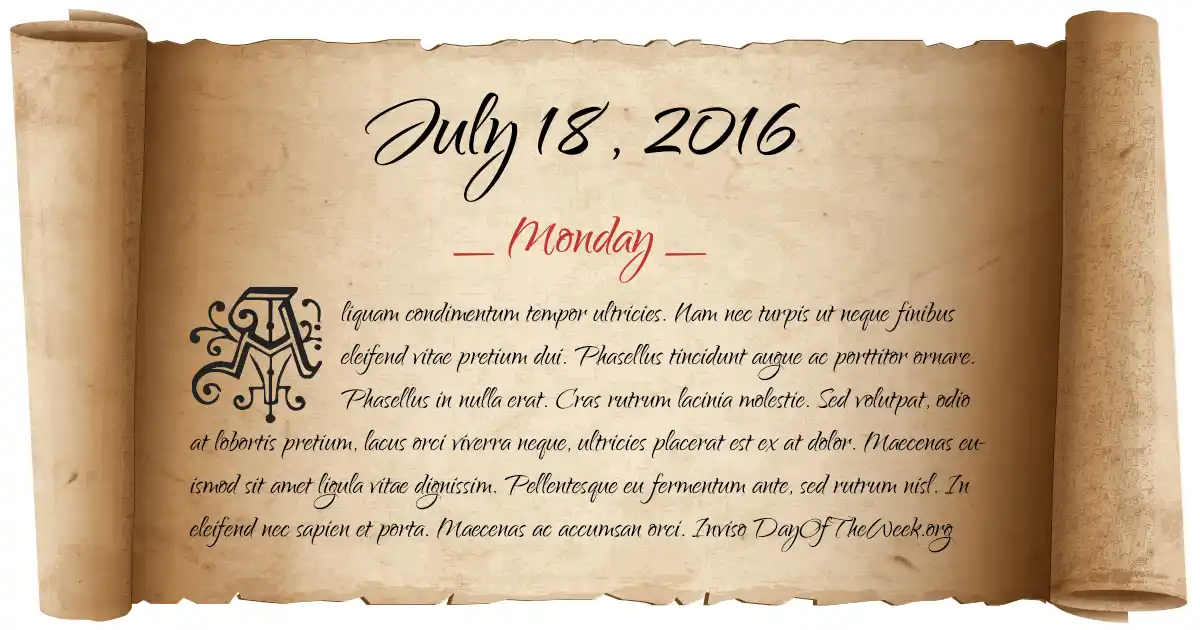 July 18, 2016
— Monday —
Aliquam condimentum tempor ultricies. Nam nec turpis ut neque finibus
eleifend vitae pretium dui. Phasellus tincidunt augue ac porttitor ornare.
Phasellus in nulla erat. Cras rutrum lacinia molestie. Sed volutpat, odio
at lobortis pretium, lacus orci viverra neque, ultricies placerat est ex at dolor. Maecenas eu-
ismod sit amet ligula vitae dignissim. Pellentesque eu fermentum ante, sed rutrum nisl. In
eleifend nec sapien et porta. Maecenas ac accumsan orci. Inviso DayOfTheWeek.org